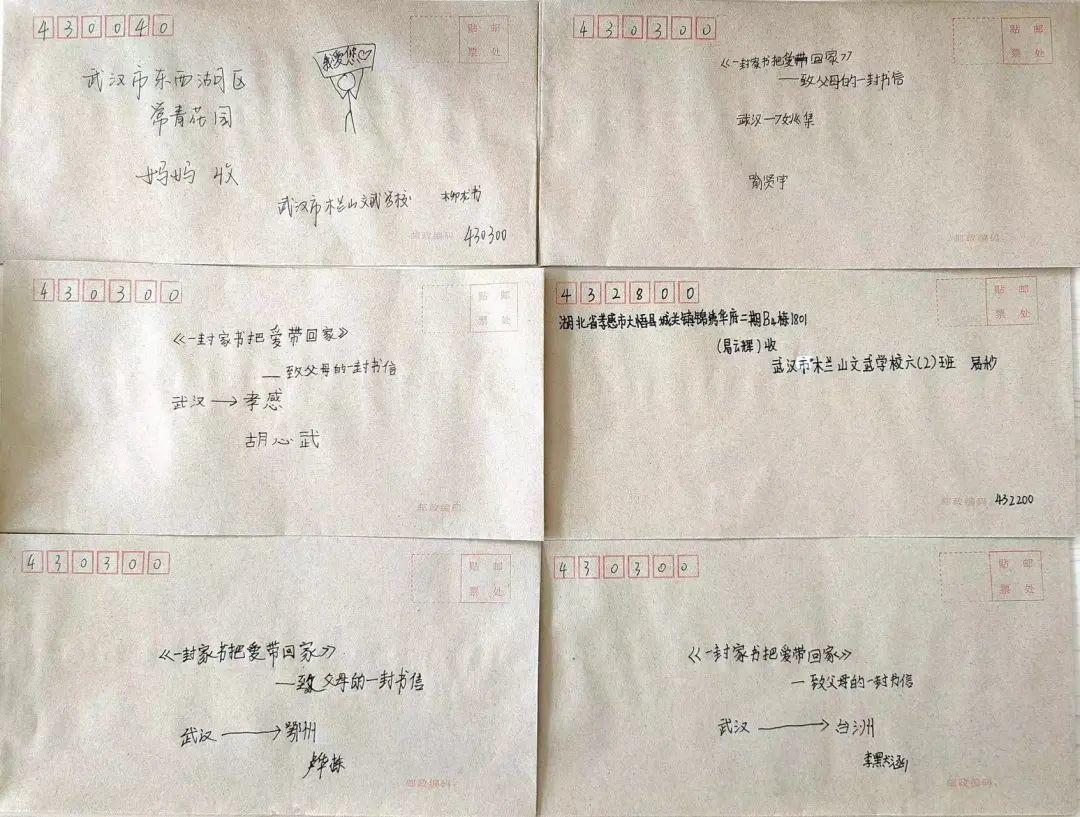 430040
贴 邮
票 处
我爱您♡
武汉市东西湖区
常青花园
妈妈 收
武汉市木兰山文武学校 柳龙书
邮政编码 430300
430300
贴 邮
票 处
《一封家书把爱带回家》
——致父母的一封书信
武汉→姚集
喻贤宇
邮政编码
430300
贴 邮
票 处
《一封家书把爱带回家》
——致父母的一封书信
武汉→孝感
胡心武
邮政编码
432800
贴 邮
票 处
湖北省孝感市大悟县城关镇锦绣华府二期B4栋1801
收
武汉市木兰山文武学校六(2)班
邮政编码 432200
430300
贴 邮
票 处
《一封家书把爱带回家》
——致父母的一封书信
武汉→鄂州
邮政编码
430300
贴 邮
票 处
《一封家书把爱带回家》
——致父母的一封书信
武汉→台州
李默涵
邮政编码